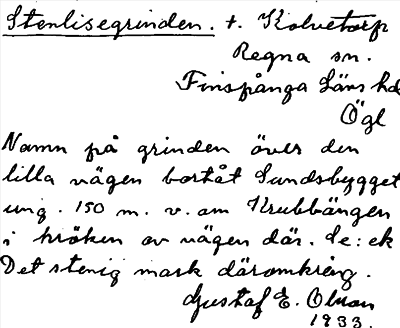 Stenlisegrinden. t. Kolvetorp
Regna sn.
Finspånga Läns hd
Ögl
Namn på grinden över den
lilla vägen bortåt Sundsbygget
ung. 150 m. v. om Krubbängen
i kröken av vägen där. Se: ek
Det stenig mark däromkring.
Gustaf E. Olson
1933.